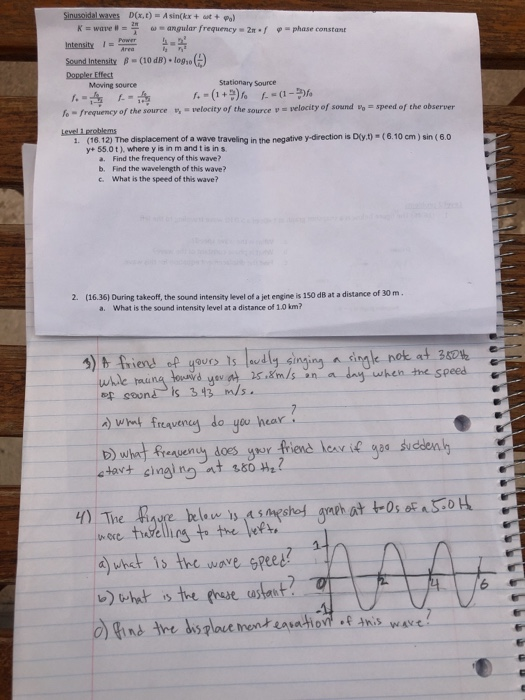 Sinusoidal waves D(x,t) = A sin(kx + ωt + φ₀)
K = wave # = 2π/λ ω = angular frequency = 2π * f φ = phase constant
Intensity I = Power/Area I₁/I₂ = r₂²/r₁²
Sound Intensity β = (10 dB) * log₁₀(I/I₀)
Doppler Effect
Moving source Stationary Source
f₊ = f₀/(1-vₛ/v) f₋ = f₀/(1+vₛ/v) f₊ = (1 + v₀/v)f₀ f₋ = (1 - v₀/v)f₀
f₀ = frequency of the source vₛ = velocity of the source v = velocity of sound v₀ = speed of the observer
Level 1 problems
1. (16.12) The displacement of a wave traveling in the negative y-direction is D(y,t) = (6.10 cm) sin (6.0
y+ 55.0 t), where y is in m and t is in s.
a. Find the frequency of this wave?
b. Find the wavelength of this wave?
c. What is the speed of this wave?
2. (16.36) During takeoff, the sound intensity level of a jet engine is 150 dB at a distance of 30 m.
a. What is the sound intensity level at a distance of 1.0 km?
3) A friend of yours is loudly singing a single note at 380Hz
while racing toward you at 25.8m/s on a day when the speed
of sound is 343 m/s.
a) what frequency do you hear?
b) what frequency does your friend hear if you suddenly
start singing at 380 Hz?
4) The figure below is a snapshot graph at t=0s of a 5.0 Hz
wave travelling to the left.
a) what is the wave speed?
b) what is the phase constant?
c) find the displacement equation of this wave?
1
0 2 4 6
-1